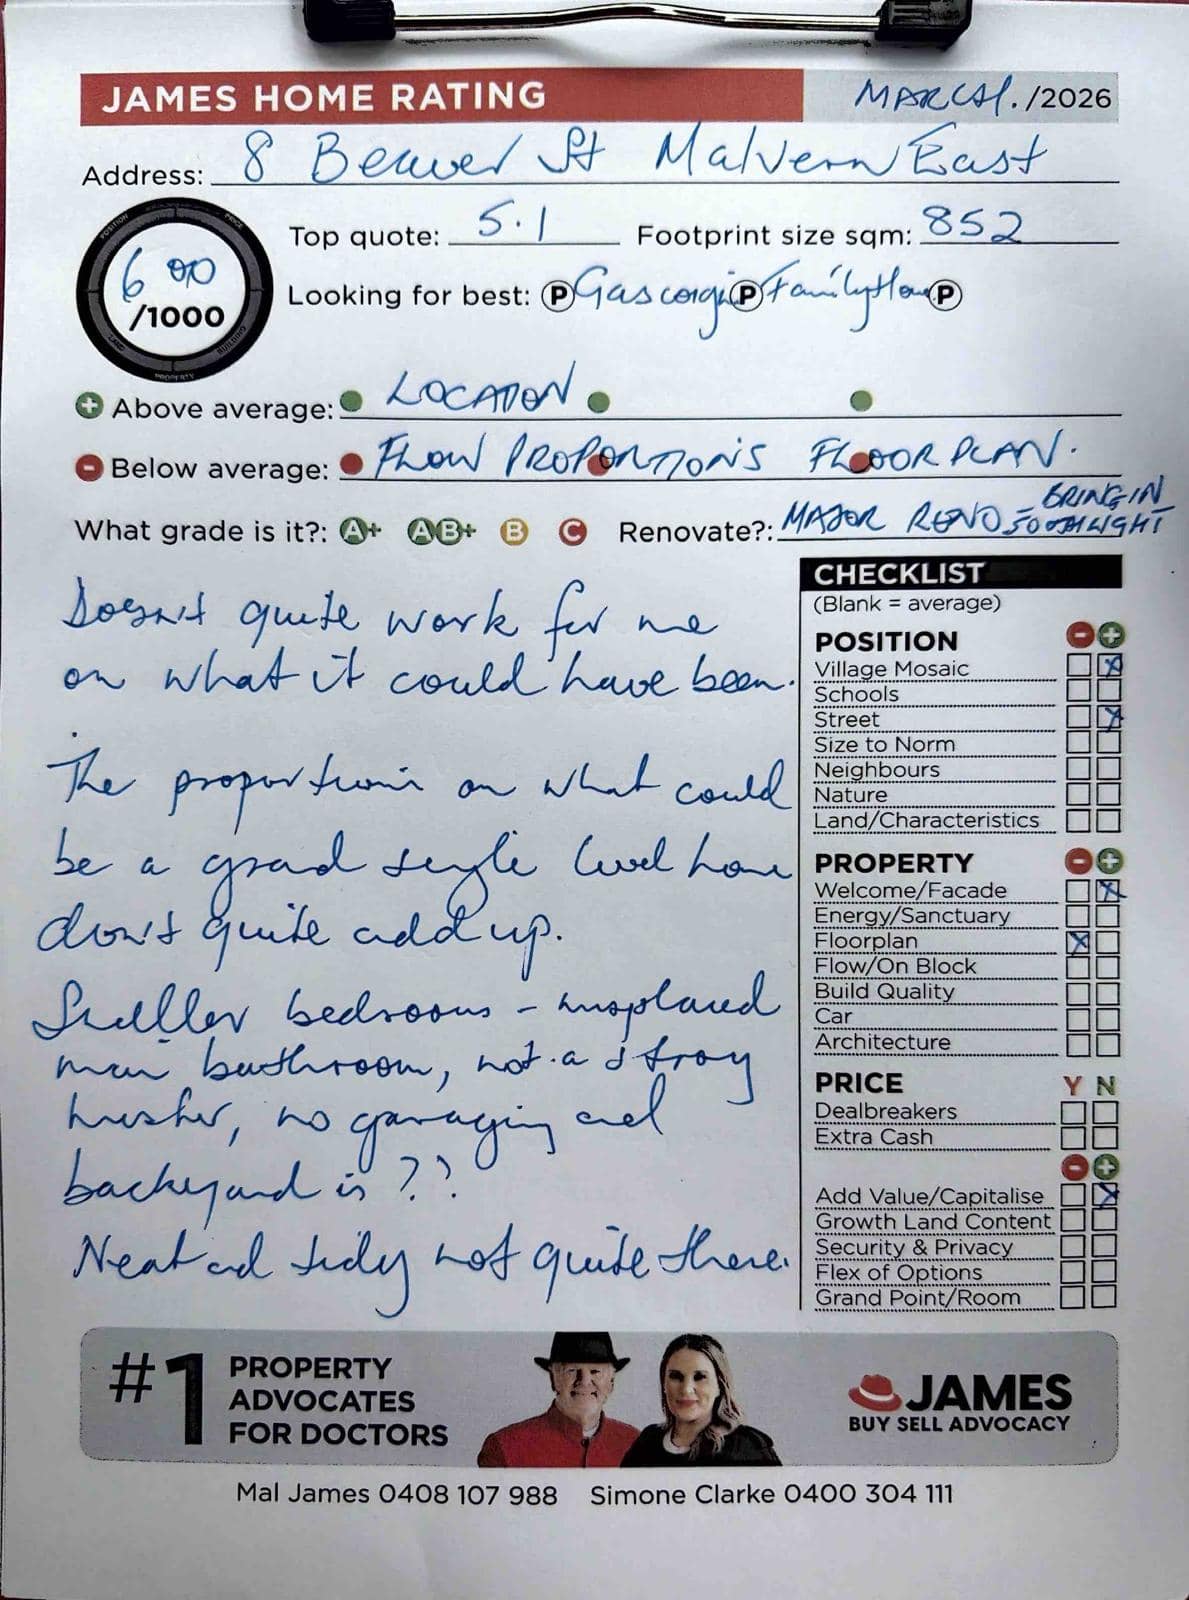 JAMES HOME RATING
MARCH./2026
Address: 8 Beaver St Malvern East
600
/1000
POSITION PRICE BUILDING PROPERTY LAND
Top quote: 5.1 Footprint size sqm: 852
Looking for best: P Gascoigne P Family Home P
+ Above average: LOCATION
- Below average: FLOW PROPORTIONS FLOORPLAN.
What grade is it?: A+ AB+ B C Renovate?: MAJOR RENO - BRING IN
SOUTH LIGHT
Doesn't quite work for me
on what it could have been.
The proportions on what could
be a grand single level home
don't quite add up.
Smaller bedrooms - misplaced
main bathroom, not a strong
master, no garaging and
backyard is ??
Neat and tidy not quite there.
CHECKLIST
(Blank = average)
POSITION - +
Village Mosaic
Schools
Street
Size to Norm
Neighbours
Nature
Land/Characteristics
PROPERTY - +
Welcome/Facade
Energy/Sanctuary
Floorplan
Flow/On Block
Build Quality
Car
Architecture
PRICE Y N
Dealbreakers
Extra Cash
- +
Add Value/Capitalise
Growth Land Content
Security & Privacy
Flex of Options
Grand Point/Room
#1 PROPERTY
ADVOCATES
FOR DOCTORS
JAMES
BUY SELL ADVOCACY
Mal James 0408 107 988 Simone Clarke 0400 304 111